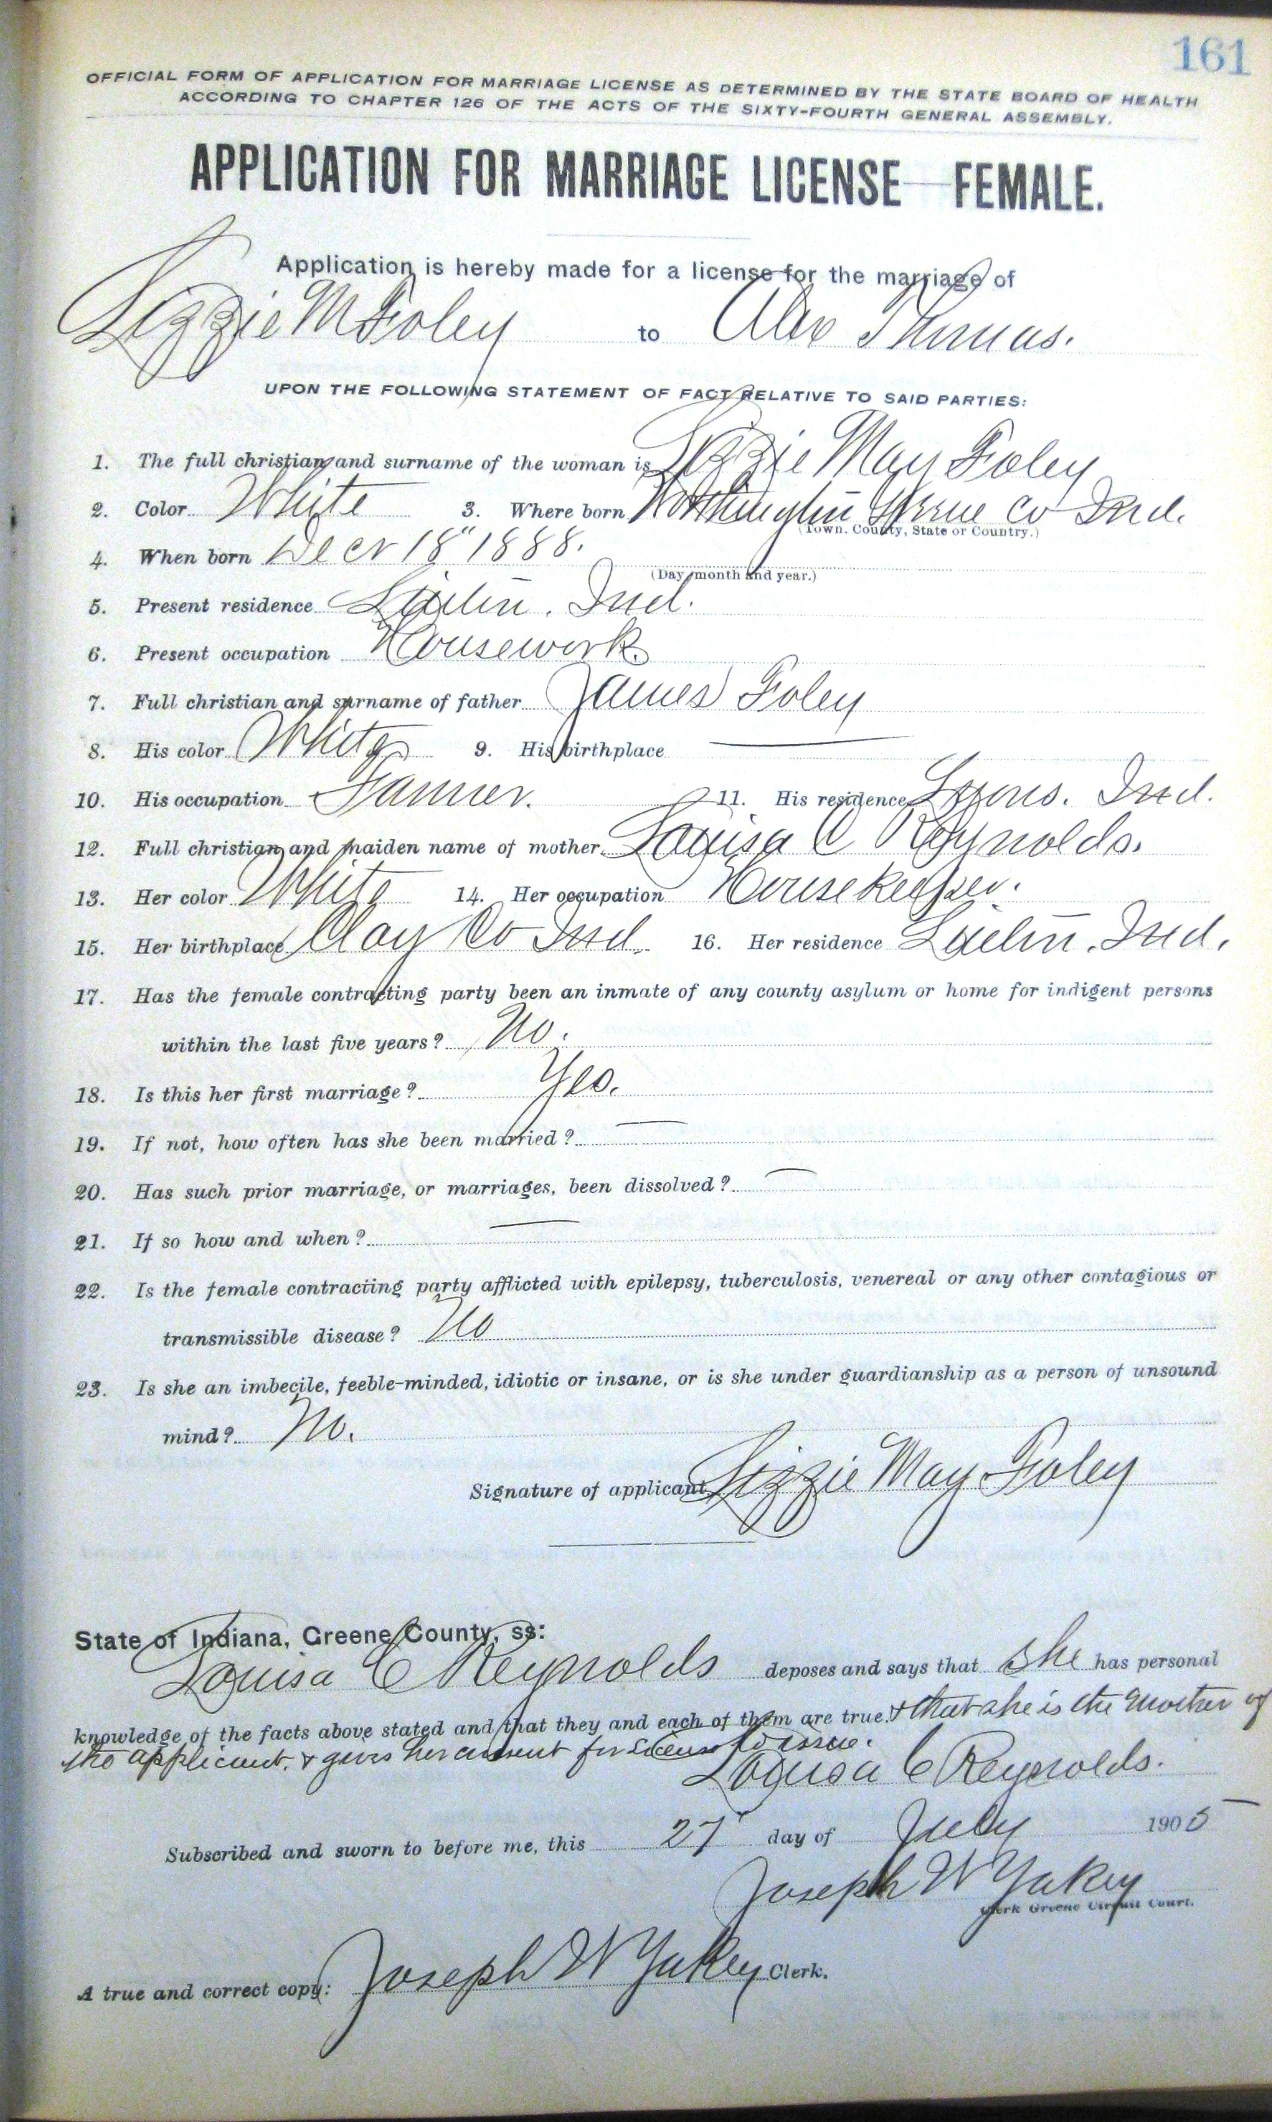 161
OFFICIAL FORM OF APPLICATION FOR MARRIAGE LICENSE AS DETERMINED BY THE STATE BOARD OF HEALTH
ACCORDING TO CHAPTER 126 OF THE ACTS OF THE SIXTY-FOURTH GENERAL ASSEMBLY.
APPLICATION FOR MARRIAGE LICENSE—FEMALE.
Application is hereby made for a license for the marriage of
Lizzie M Foley to Alex Thomas.
UPON THE FOLLOWING STATEMENT OF FACT RELATIVE TO SAID PARTIES:
1. The full christian and surname of the woman is Lizzie May Foley
2. Color White 3. Where born Worthington Greene Co Ind.
(Town. County, State or Country.)
4. When born Decr 18" 1888.
(Day, month and year.)
5. Present residence Linton. Ind.
6. Present occupation Housework.
7. Full christian and surname of father James Foley
8. His color White 9. His birthplace —
10. His occupation Farmer. 11. His residence Lyons. Ind.
12. Full christian and maiden name of mother. Louisa C Reynolds.
13. Her color White 14. Her occupation Housekeeper.
15. Her birthplace Clay Co Ind. 16. Her residence Linton. Ind.
17. Has the female contracting party been an inmate of any county asylum or home for indigent persons
within the last five years? No.
18. Is this her first marriage? Yes.
19. If not, how often has she been married? —
20. Has such prior marriage, or marriages, been dissolved? —
21. If so how and when? —
22. Is the female contracting party afflicted with epilepsy, tuberculosis, venereal or any other contagious or
transmissible disease? No
23. Is she an imbecile, feeble-minded, idiotic or insane, or is she under guardianship as a person of unsound
mind? No.
Signature of applicant, Lizzie May Foley
State of Indiana, Greene County, ss:
Louisa C Reynolds deposes and says that she has personal
knowledge of the facts above stated and that they and each of them are true. & that she is the mother of
the applicant. & gives her consent for License to issue.
Louisa C Reynolds.
Subscribed and sworn to before me, this 27" day of July 1905
Joseph W Yakey
Clerk Greene Circuit Court.
A true and correct copy: Joseph W Yakey Clerk.